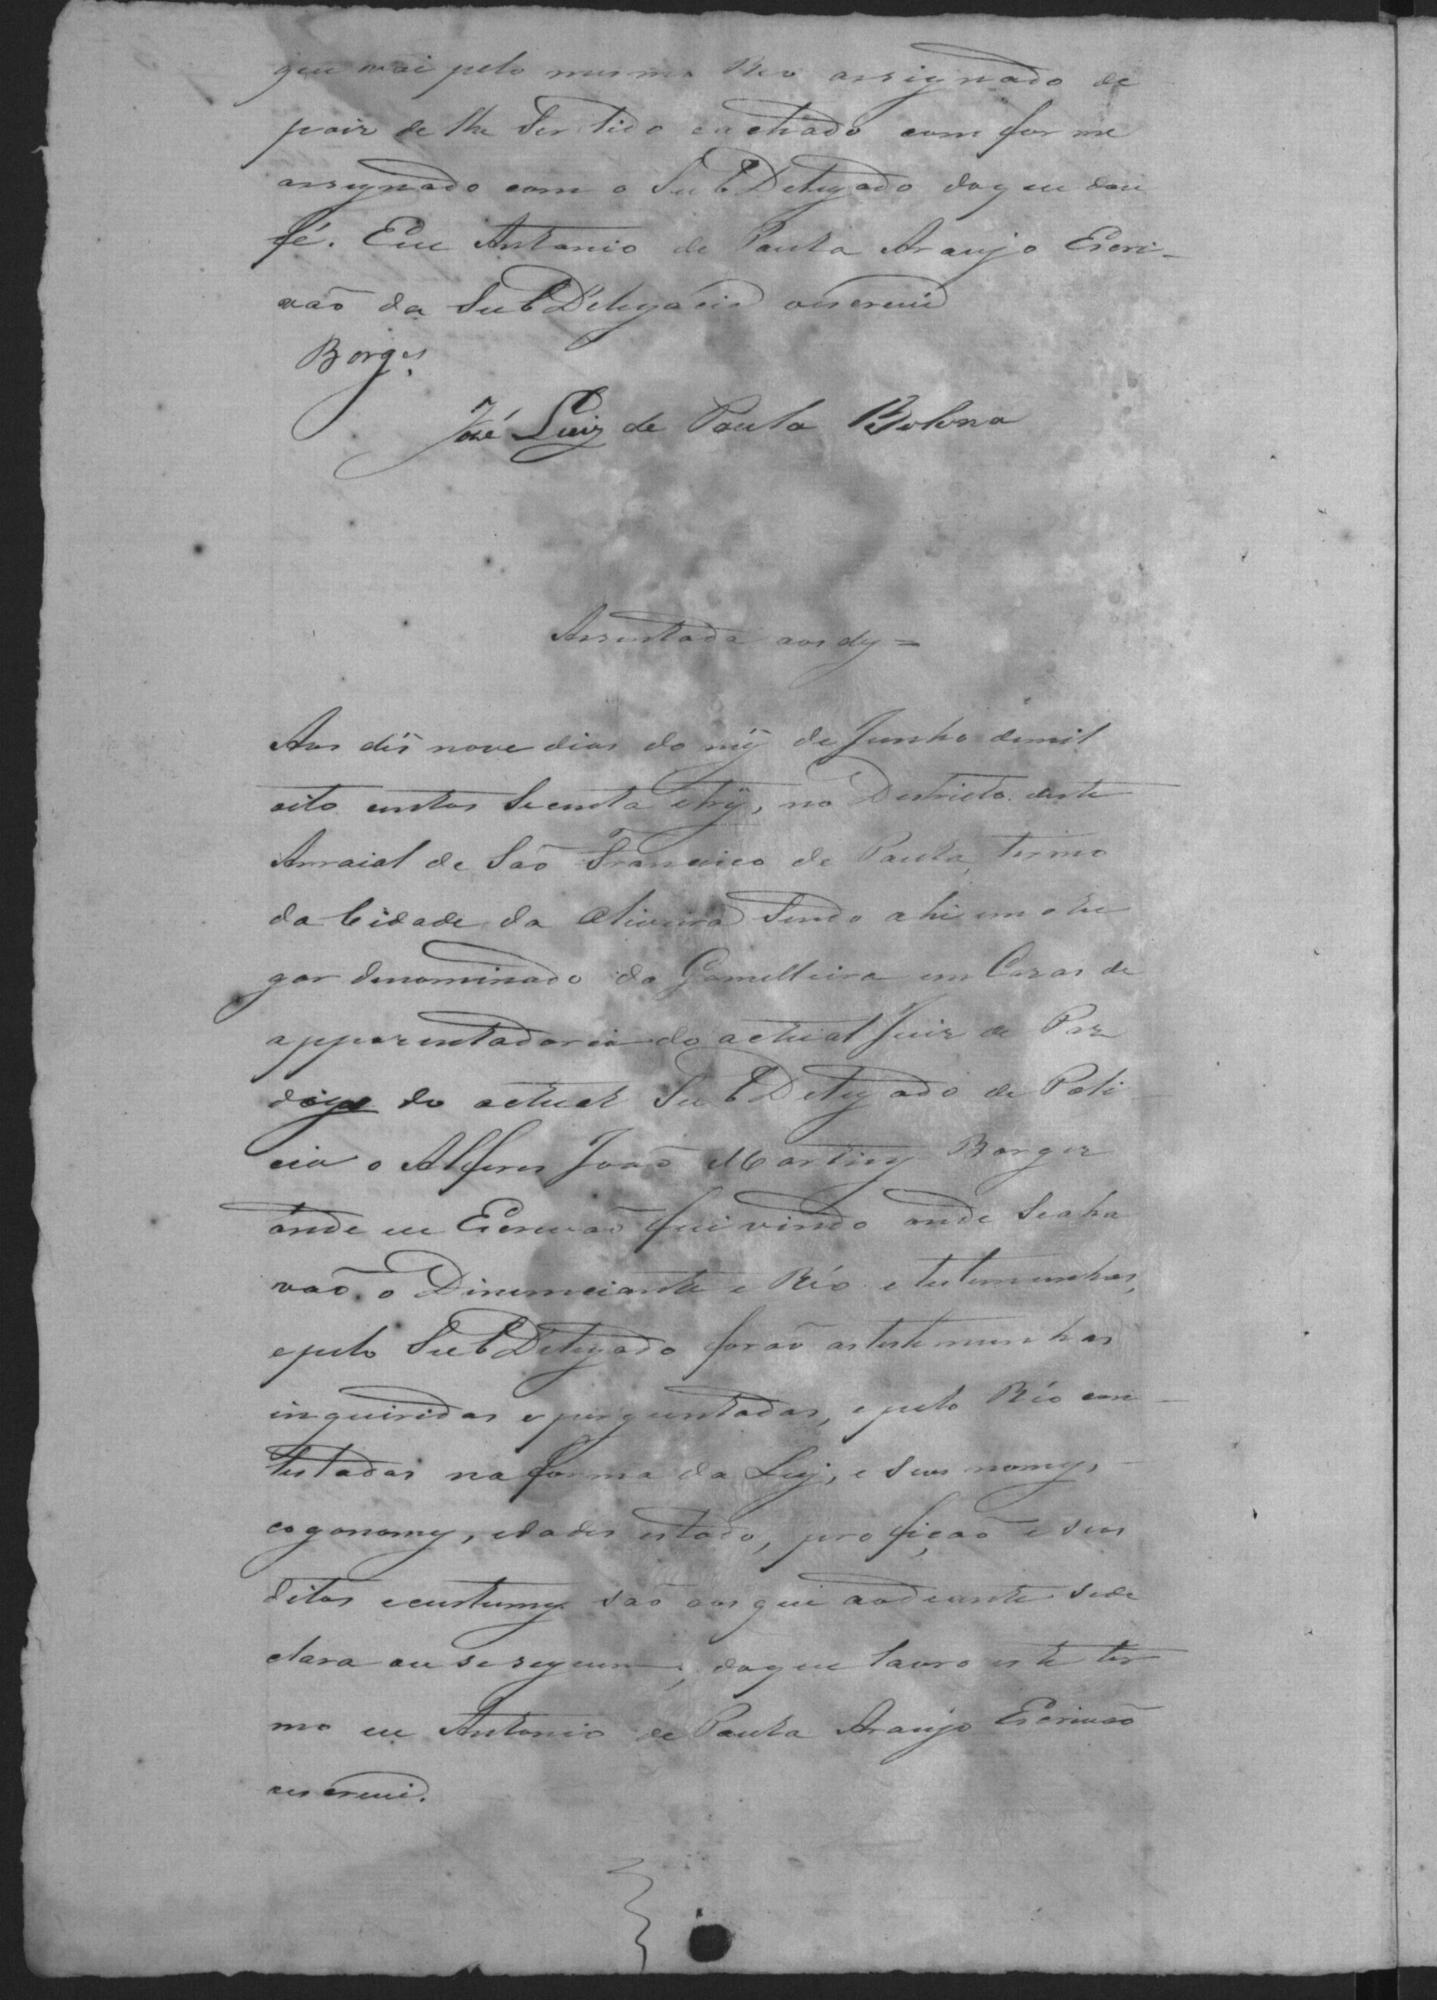 que vai pelo mesmo Reo assignado de
pois de lhe ser lido e achado comforme
assignado com o SubDelegado doque dou
fé. Eu Antonio de Paula Araujo Escri-
vão da SubDelegacia oescrevi
Borges.
José Luiz de Paula
Assentada aos dy=
Aos dis nove dias do mij de Junho demil
oito centos Secenta etrij, no Destricto deste
Arraial de São Francisco de Paula, termo
da Cidade da Oliveira Sendo ahi em o lu
gar denominado da Gamelleira em Cazas de
appozentadoria do actual Juiz de Paz
digo do actual SubDelegado de Poli-
cia o Alferes João Martins Borges
onde eu Escrivão fui vindo onde Seaha
vão o Dinunciante e Réo e testemunhas,
epelo SubDelegado forão astestemunhas
inqueridas eperguntadas, epelo Réo con-
testadas na forma da Ley, e Seus nomes,
cogonomes, edades estado, profição e seus
ditos ecustumes são os que aodeante sede
clara ou se seguem; doque lavro este ter
mo eu Antonio de Paula Araujo Escrivão
oescrevi.